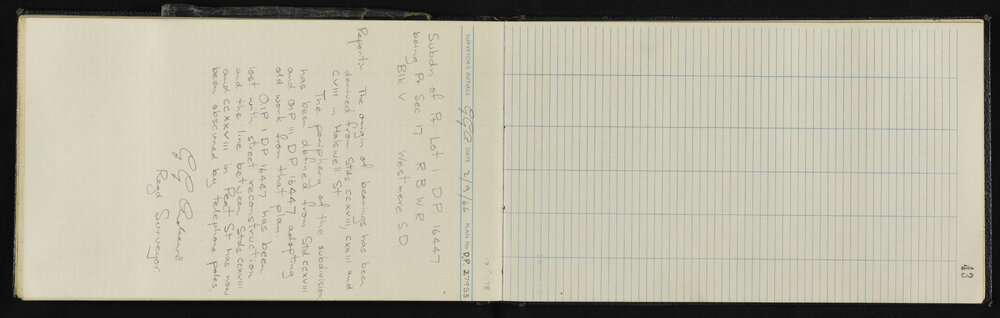 SURVEYOR'S INITIALS GGA DATE 2/9/66 PLAN No. D.P. 27953
Subdn of Pt Lot 1 DP 16447
being Pt Sec 17 R B W R
Blk V Westmere S D
Report:- The origin of bearings has been
derived from Stds ccxviii, cxxiii and
cviii in Halswell St
The periphery of the subdivision
has been defined from Std ccxviii
and OIP III DP 16447 adopting
old work from that plan.
OIP I DP 16447 has been
lost with street reconstruction
and the line between Stds ccxviii
and ccxxviii in Peat St has now
been obscured by telephone poles.
Regd Surveyor
43